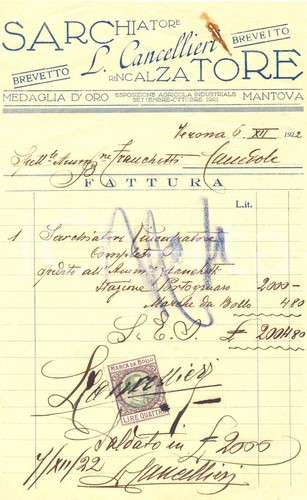 SARCHIATORE
BREVETTO
L. Cancellieri
BREVETTO
RINCALZATORE
MEDAGLIA D'ORO
ESPOSIZIONE AGRICOLA INDUSTRIALE
SETTEMBRE-OTTOBRE 1921
MANTOVA
Verona 6 XII 1922
Spett.le Amm.ne Franchetti Canedole
FATTURA
L.it.
1 Sarchiatore Rincalzatore
Completo
spedito all'Amm Franchetti
Stazione Portogruaro 2000-
Marche da Bollo 4 80
S. E. O. £ 2004 80
Cancellieri
MARCA DA BOLLO
LIRE QUATTRO
Saldato in £ 2000
7/XII/22 Cancellieri